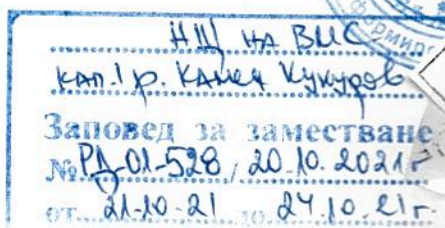 НЩ на ВМС
кап. I р. Камен Кукуров
Заповед за заместване
№ РД-01-528 / 20.10.2021 г
от 21-10-21 до 24.10.21г.